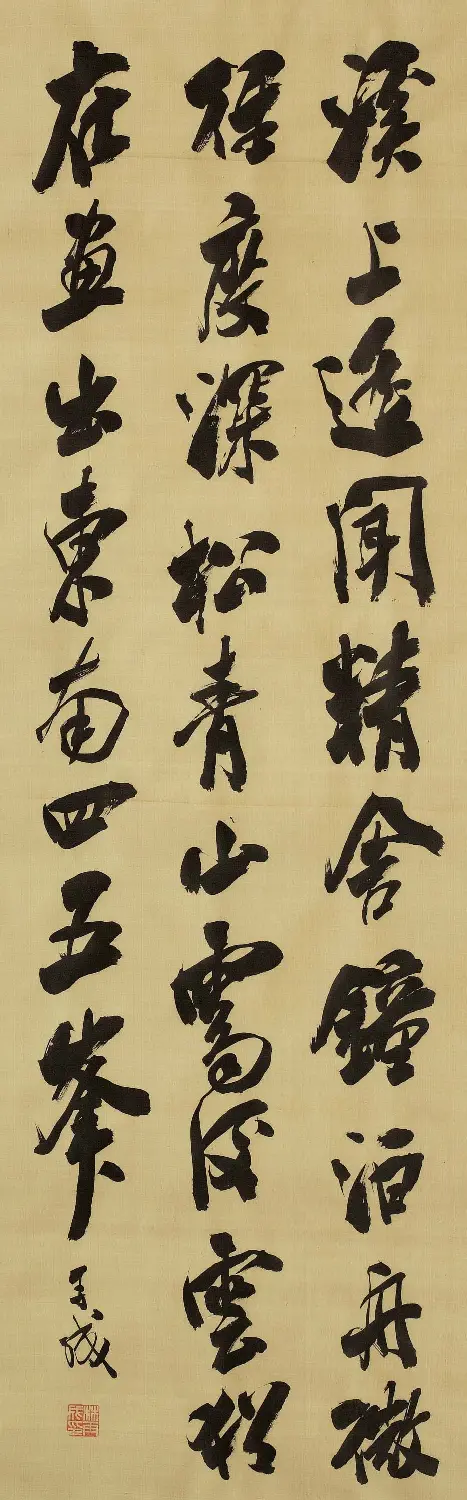 溪上遙聞精舍鐘泊舟微
徑度深松青山霽後雲猶
在畫出東南四五峯